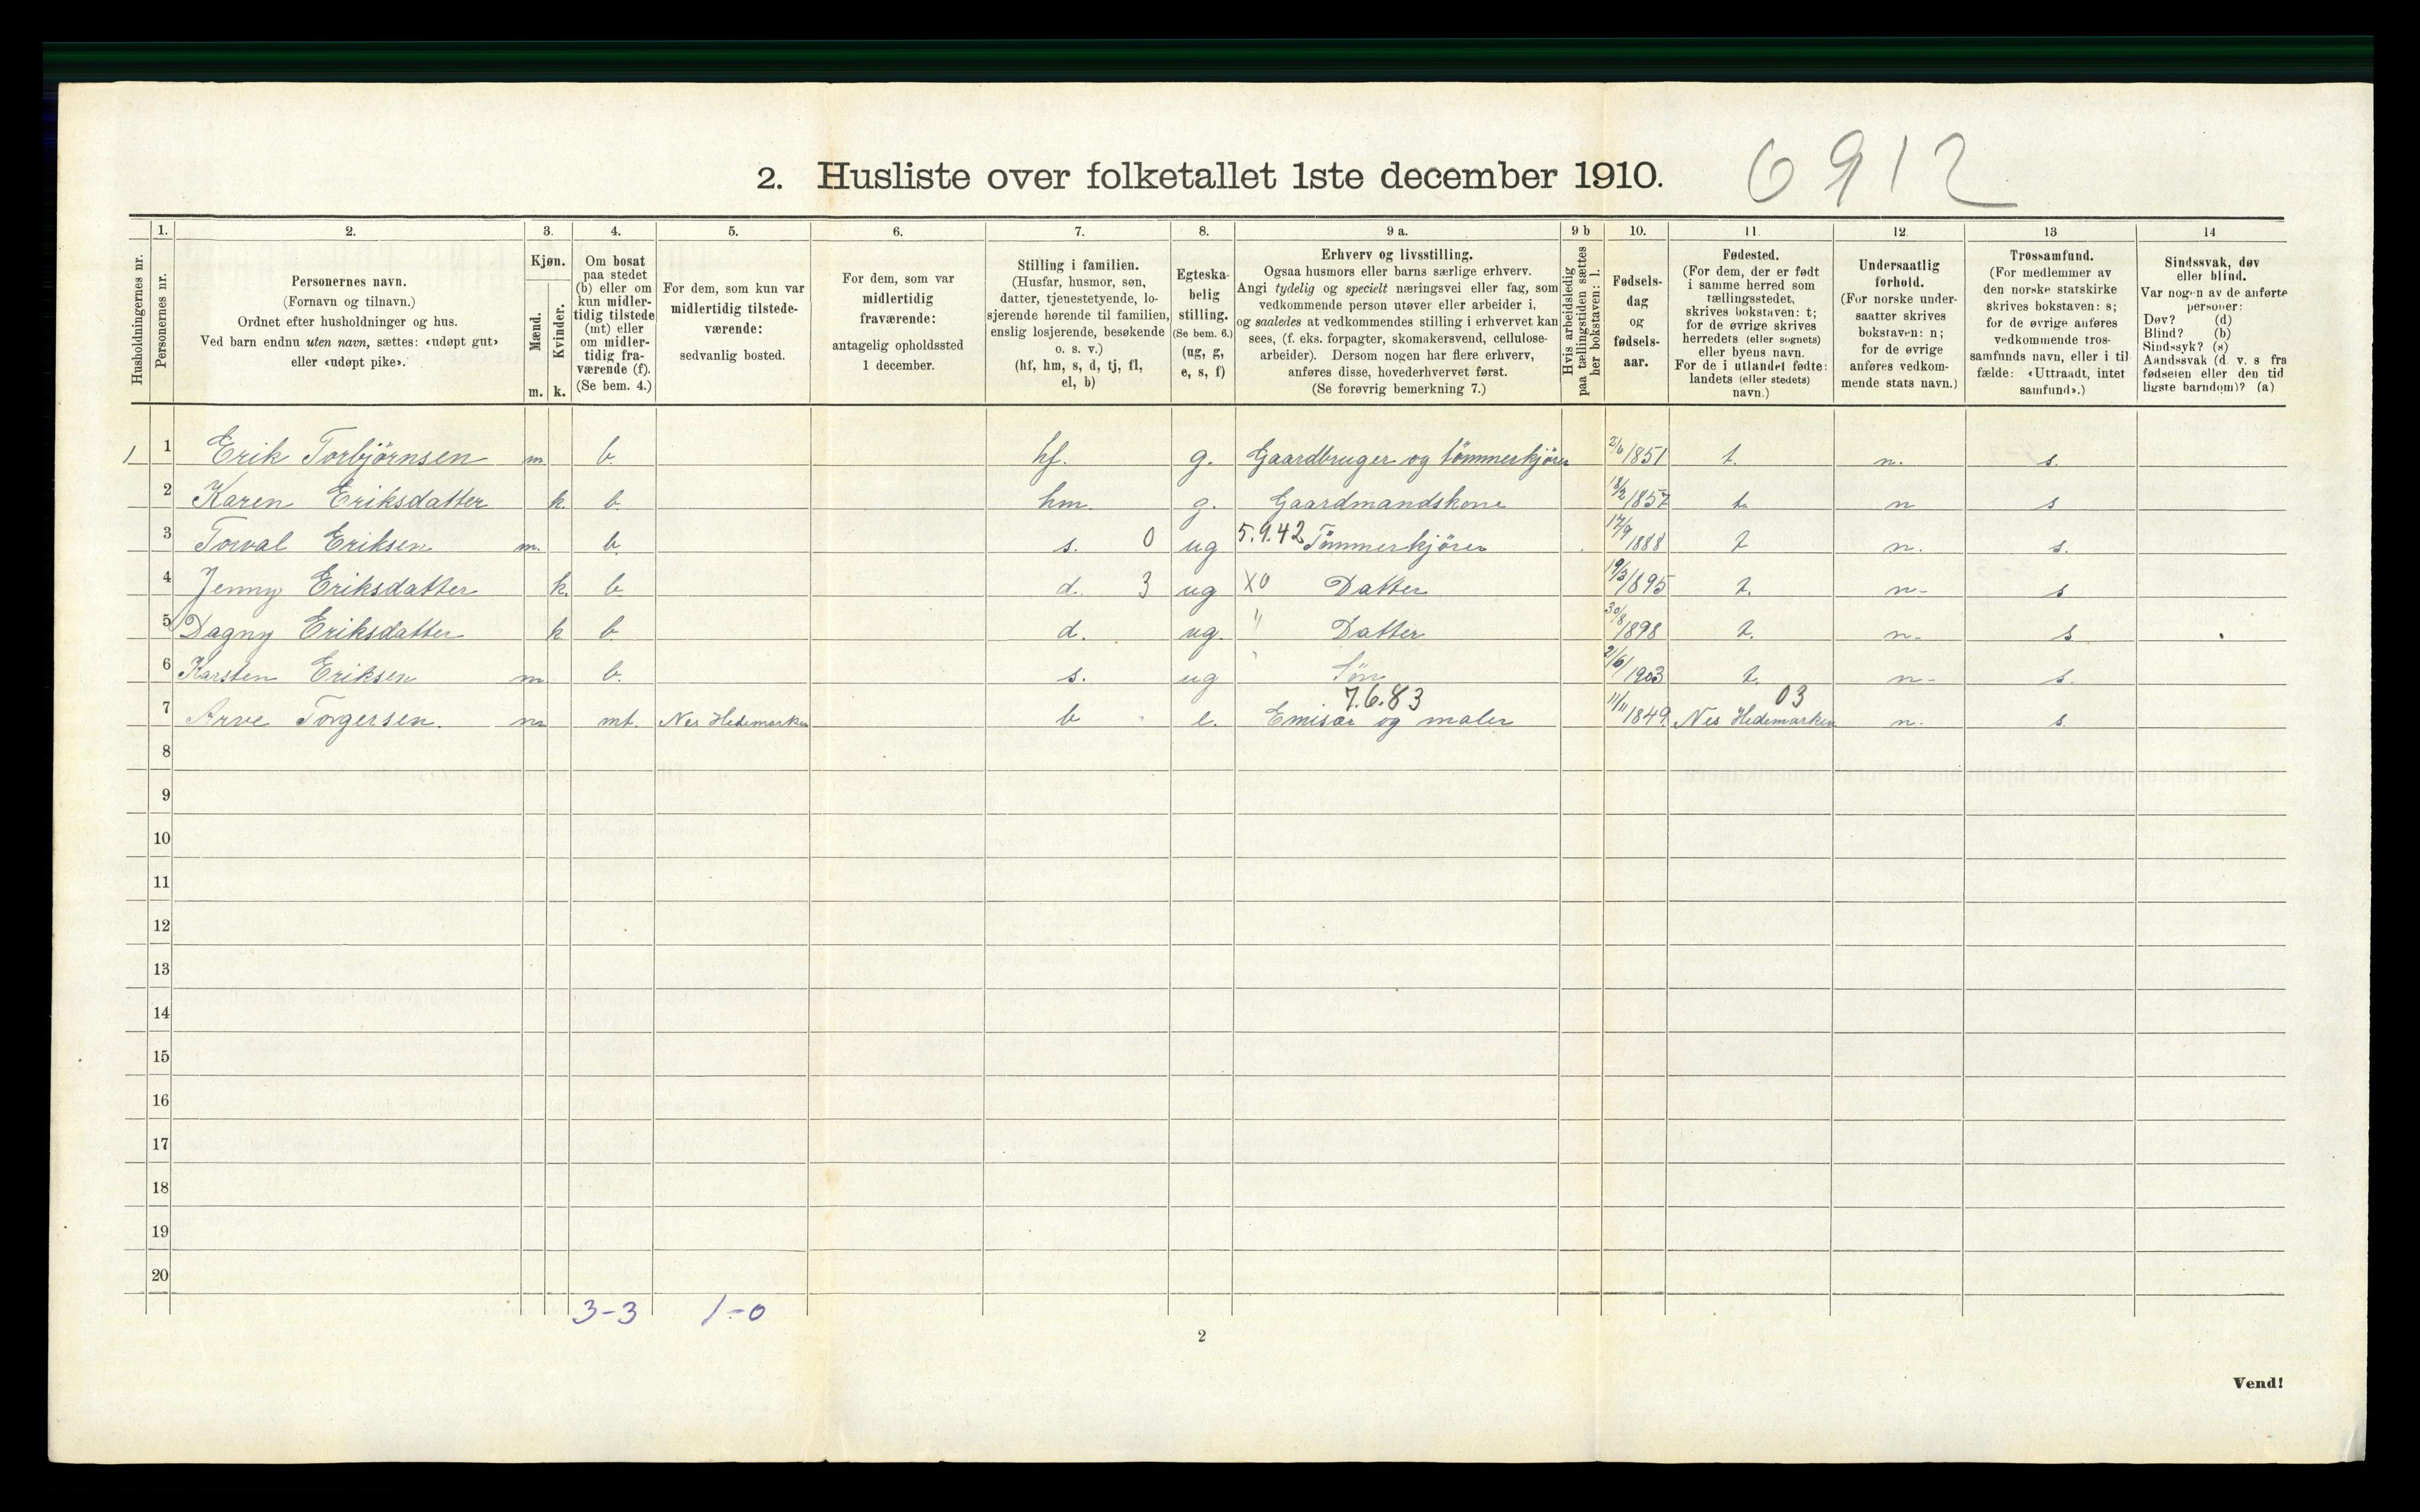 2. Husliste over folketallet 1ste december 1910.
6912
1. 2. 3. 4. 5. 6. 7. 8. 9 a. 9 b 10. 11. 12. 13 14
Husholdningernes nr.
Personernes nr.
Personernes navn.
(Fornavn og tilnavn.)
Ordnet efter husholdninger og hus.
Ved barn endnu uten navn, sættes: «udøpt gut»
eller «udøpt pike».
Kjøn.
Mænd.
Kvinder.
m. k.
Om bosat
paa stedet
(b) eller om
kun midler-
tidig tilstede
(mt) eller
om midler-
tidig fra-
værende (f).
(Se bem. 4.)
For dem, som kun var
midlertidig tilstede-
værende:
sedvanlig bosted.
For dem, som var
midlertidig
fraværende:
antagelig opholdssted
1 december.
Stilling i familien.
(Husfar, husmor, søn,
datter, tjenestetyende, lo-
sjerende hørende til familien,
enslig losjerende, besøkende
o. s. v.)
(hf, hm, s, d, tj, fl,
el, b)
Egteska-
belig
stilling.
(Se bem. 6.)
(ug, g,
e, s, f)
Erhverv og livsstilling.
Ogsaa husmors eller barns særlige erhverv.
Angi tydelig og specielt næringsvei eller fag, som
vedkommende person utøver eller arbeider i,
og saaledes at vedkommendes stilling i erhvervet kan
sees, (f. eks. forpagter, skomakersvend, cellulose-
arbeider). Dersom nogen har flere erhverv,
anføres disse, hovederhvervet først.
(Se forøvrig bemerkning 7.)
Hvis arbeidsledig
paa tællingstiden sættes
her bokstaven: l.
Fødsels-
dag
og
fødsels-
aar.
Fødested.
(For dem, der er født
i samme herred som
tællingsstedet,
skrives bokstaven: t;
for de øvrige skrives
herredets (eller sognets)
eller byens navn.
For de i utlandet fødte:
landets (eller stedets)
navn.)
Undersaatlig
forhold.
(For norske under-
saatter skrives
bokstaven: n;
for de øvrige
anføres vedkom-
mende stats navn.)
Trossamfund.
(For medlemmer av
den norske statskirke
skrives bokstaven: s;
for de øvrige anføres
vedkommende tros-
samfunds navn, eller i til-
fælde: «Uttraadt, intet
samfund».)
Sindssvak, døv
eller blind.
Var nogen av de anførte
personer:
Døv? (d)
Blind? (b)
Sindssyk? (s)
Aandssvak (d. v. s. fra
fødselen eller den tid-
ligste barndom)? (a)
1 1 Erik Torbjörnsen m. b. hf. g. Gaardbruger og tömmerkjörer 2/6 1851 t. n. s.
2 Karen Eriksdatter k. b. hm. g. Gaardmandskone 18/2 1857 t. n s
3 Torval Eriksen m. b. s. 0 ug 5.9.42 Tömmerkjörer 17/9 1888 t n. s.
4 Jenny Eriksdatter k. b d. 3 ug X0 Datter 19/3 1895 t. n- s
5 Dagny Eriksdatter k b. d. ug. " Datter 30/8 1898 t. n- s
6 Karsten Eriksen m b. s. ug " Sön 2/6 1903 t. n- s.
7.6.83 03
7 Arve Torgersen. m mt. Nes Hedemarken b e. Emisær og maler 11/11 1849. Nes Hedemarken n. s.
8
9
10
11
12
13
14
15
16
17
18
19
20
3-3 1-0
2
Vend!